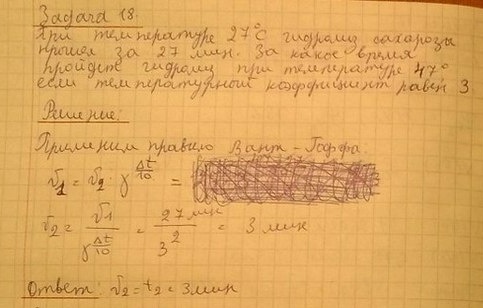 Задача 18.
При температуре 27°C гидролиз сахарозы
прошел за 27 мин. За какое время
пройдет гидролиз при температуре 47°
если температурный коэффициент равен 3
Решение:
Применим правило Вант-Гоффа.
v₁ = v₂ · γ^(Δt/10) =
v₂ = v₁ / γ^(Δt/10) = 27 мин / 3² = 3 мин
Ответ: v₂ = t₂ = 3 мин